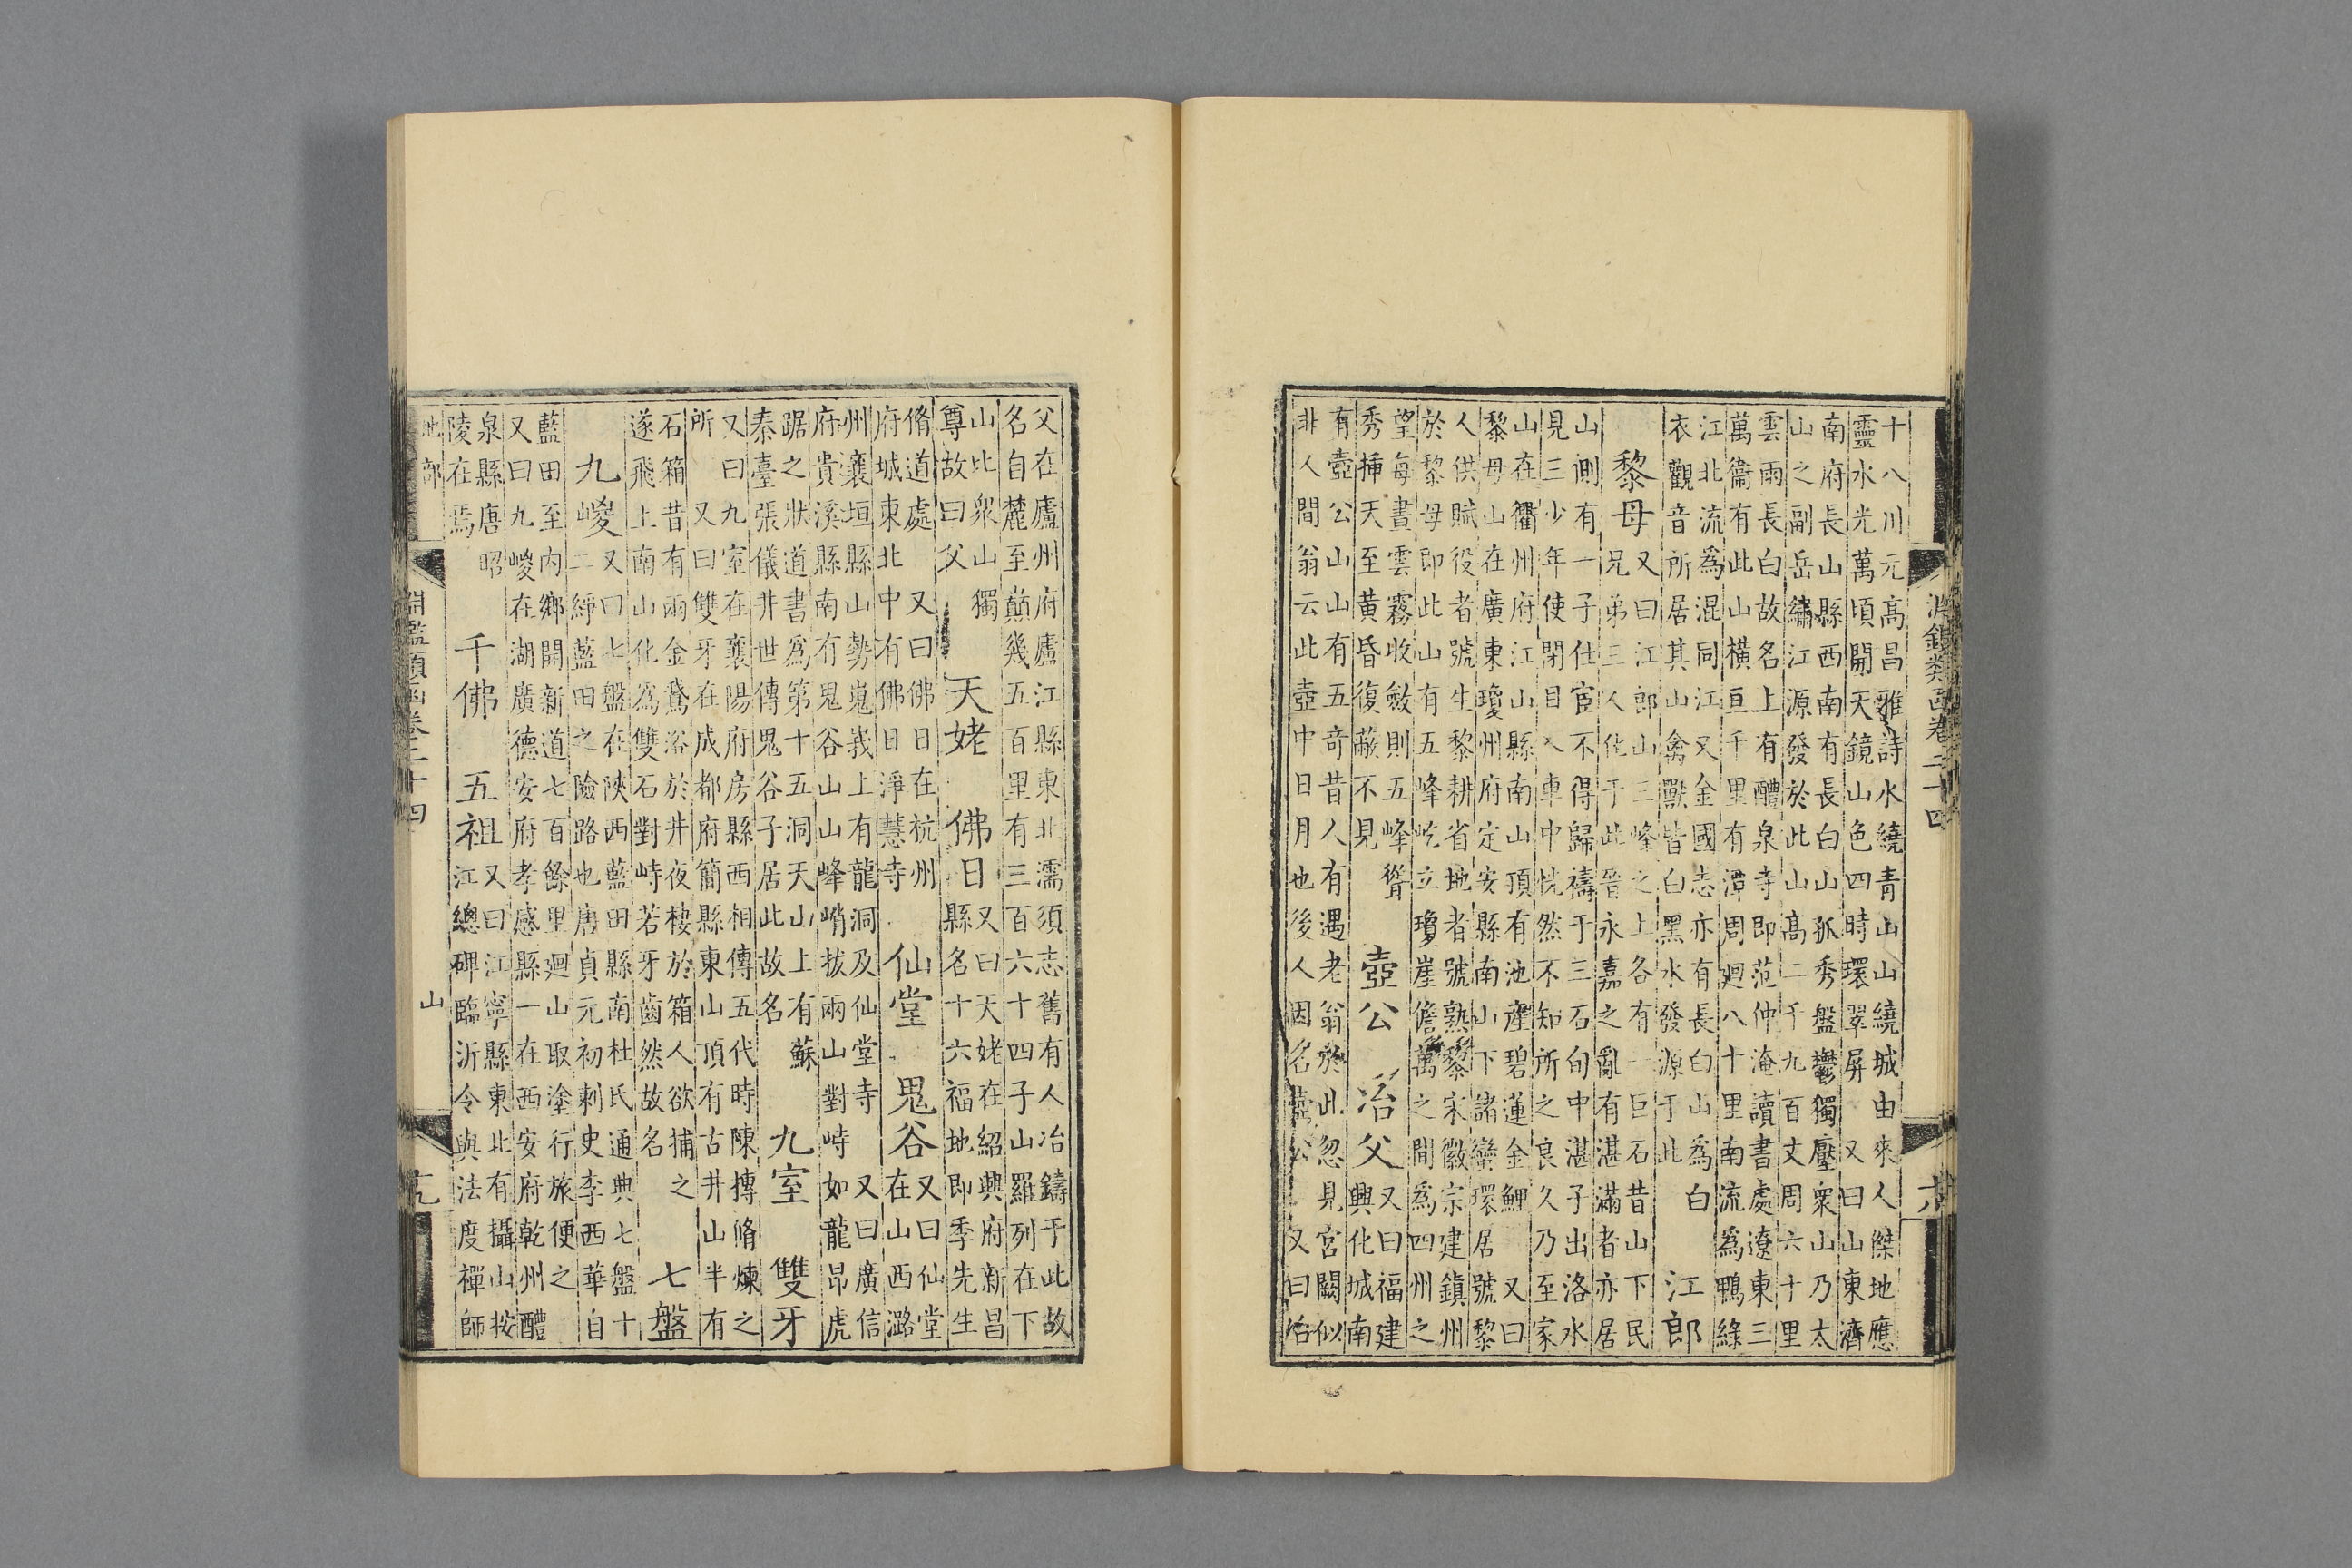 十八川元高昌雅詩水繞青山山繞城由來人傑地應
靈水光萬頃開天鏡山色四時環翠屏 又曰山東濟
南府長山縣西南有長白山孤秀盤鬱獨壓衆山乃太
山之副岳繡江源發於此山高二千九百丈周六十里
雲雨長白故名上有醴泉寺即范仲淹讀書處遼東三
萬衞有此山橫亘千里有潭周廻八十里南流爲鴨綠
江北流爲混同江又金國志亦有長白山爲白
衣觀音所居其山禽獸皆白黑水發源于此
江郎
黎母
又曰江郎山三峰之上各有一巨石昔山下民
兄弟三人化于此晉永嘉之亂有湛滿者亦居
山側有一子仕宦不得歸禱于三石旬中湛子出洛水
見三少年使閉目入車中恍然不知所之良久乃至家
山在衢州府江山縣南山頂有池產碧蓮金鯉 又曰
黎母山在廣東瓊州府定安縣南山下諸蠻環居號黎
人供賦役者號生黎耕省地者號熟黎宋徽宗建鎮州
於黎母即此山有五峰屹立瓊崖儋萬之間爲四州之
望每晝雲霧收斂則五峰聳
秀挿天至黃昏復蔽不見
壺公 冶父
又曰福建
興化城南
有壺公山山有五奇昔人有遇老翁於此忽見宮闕似
非人間翁云此壺中日月也後人因名壺公 又曰冶
父在廬州府廬江縣東北濡須志舊有人冶鑄于此故
名自麓至巔幾五百里有三百六十四子山羅列在下
山比衆山獨
尊故曰父
天姥 佛日
又曰天姥在紹興府新昌
縣名十六福地即季先生
脩道處 又曰佛日在杭州
府城東北中有佛日淨慧寺
仙堂 鬼谷
又曰仙堂
在山西潞
州襄垣縣縣山勢嵬峩上有龍洞及仙堂寺 又曰廣信
府貴溪縣南有鬼谷山山峰峭拔兩山對峙如龍昂虎
踞之狀道書爲第十五洞天山上有蘇
秦臺張儀井世傳鬼谷子居此故名
九室 雙牙
又曰九室在襄陽府房縣西相傳五代時陳摶脩煉之
所 又曰雙牙在成都府簡縣東山頂有古井山半有
石箱昔有兩金鵞浴於井夜棲於箱人欲捕之
遂飛上南山化爲雙石對峙若牙齒然故名
七盤
九嵕
又曰七盤在陝西藍田縣南杜氏通典七盤十
二綷藍田之險路也唐貞元初刺史李西華自
藍田至内鄉開新道七百餘里廻山取塗行旅便之
又曰九嵕在湖廣德安府孝感縣一在西安府乾州醴
泉縣唐昭
陵在焉
千佛 五祖
又曰江寧縣東北有攝山按
江總碑臨沂令與法度禪師
地部
淵鑑類函卷二十四
山